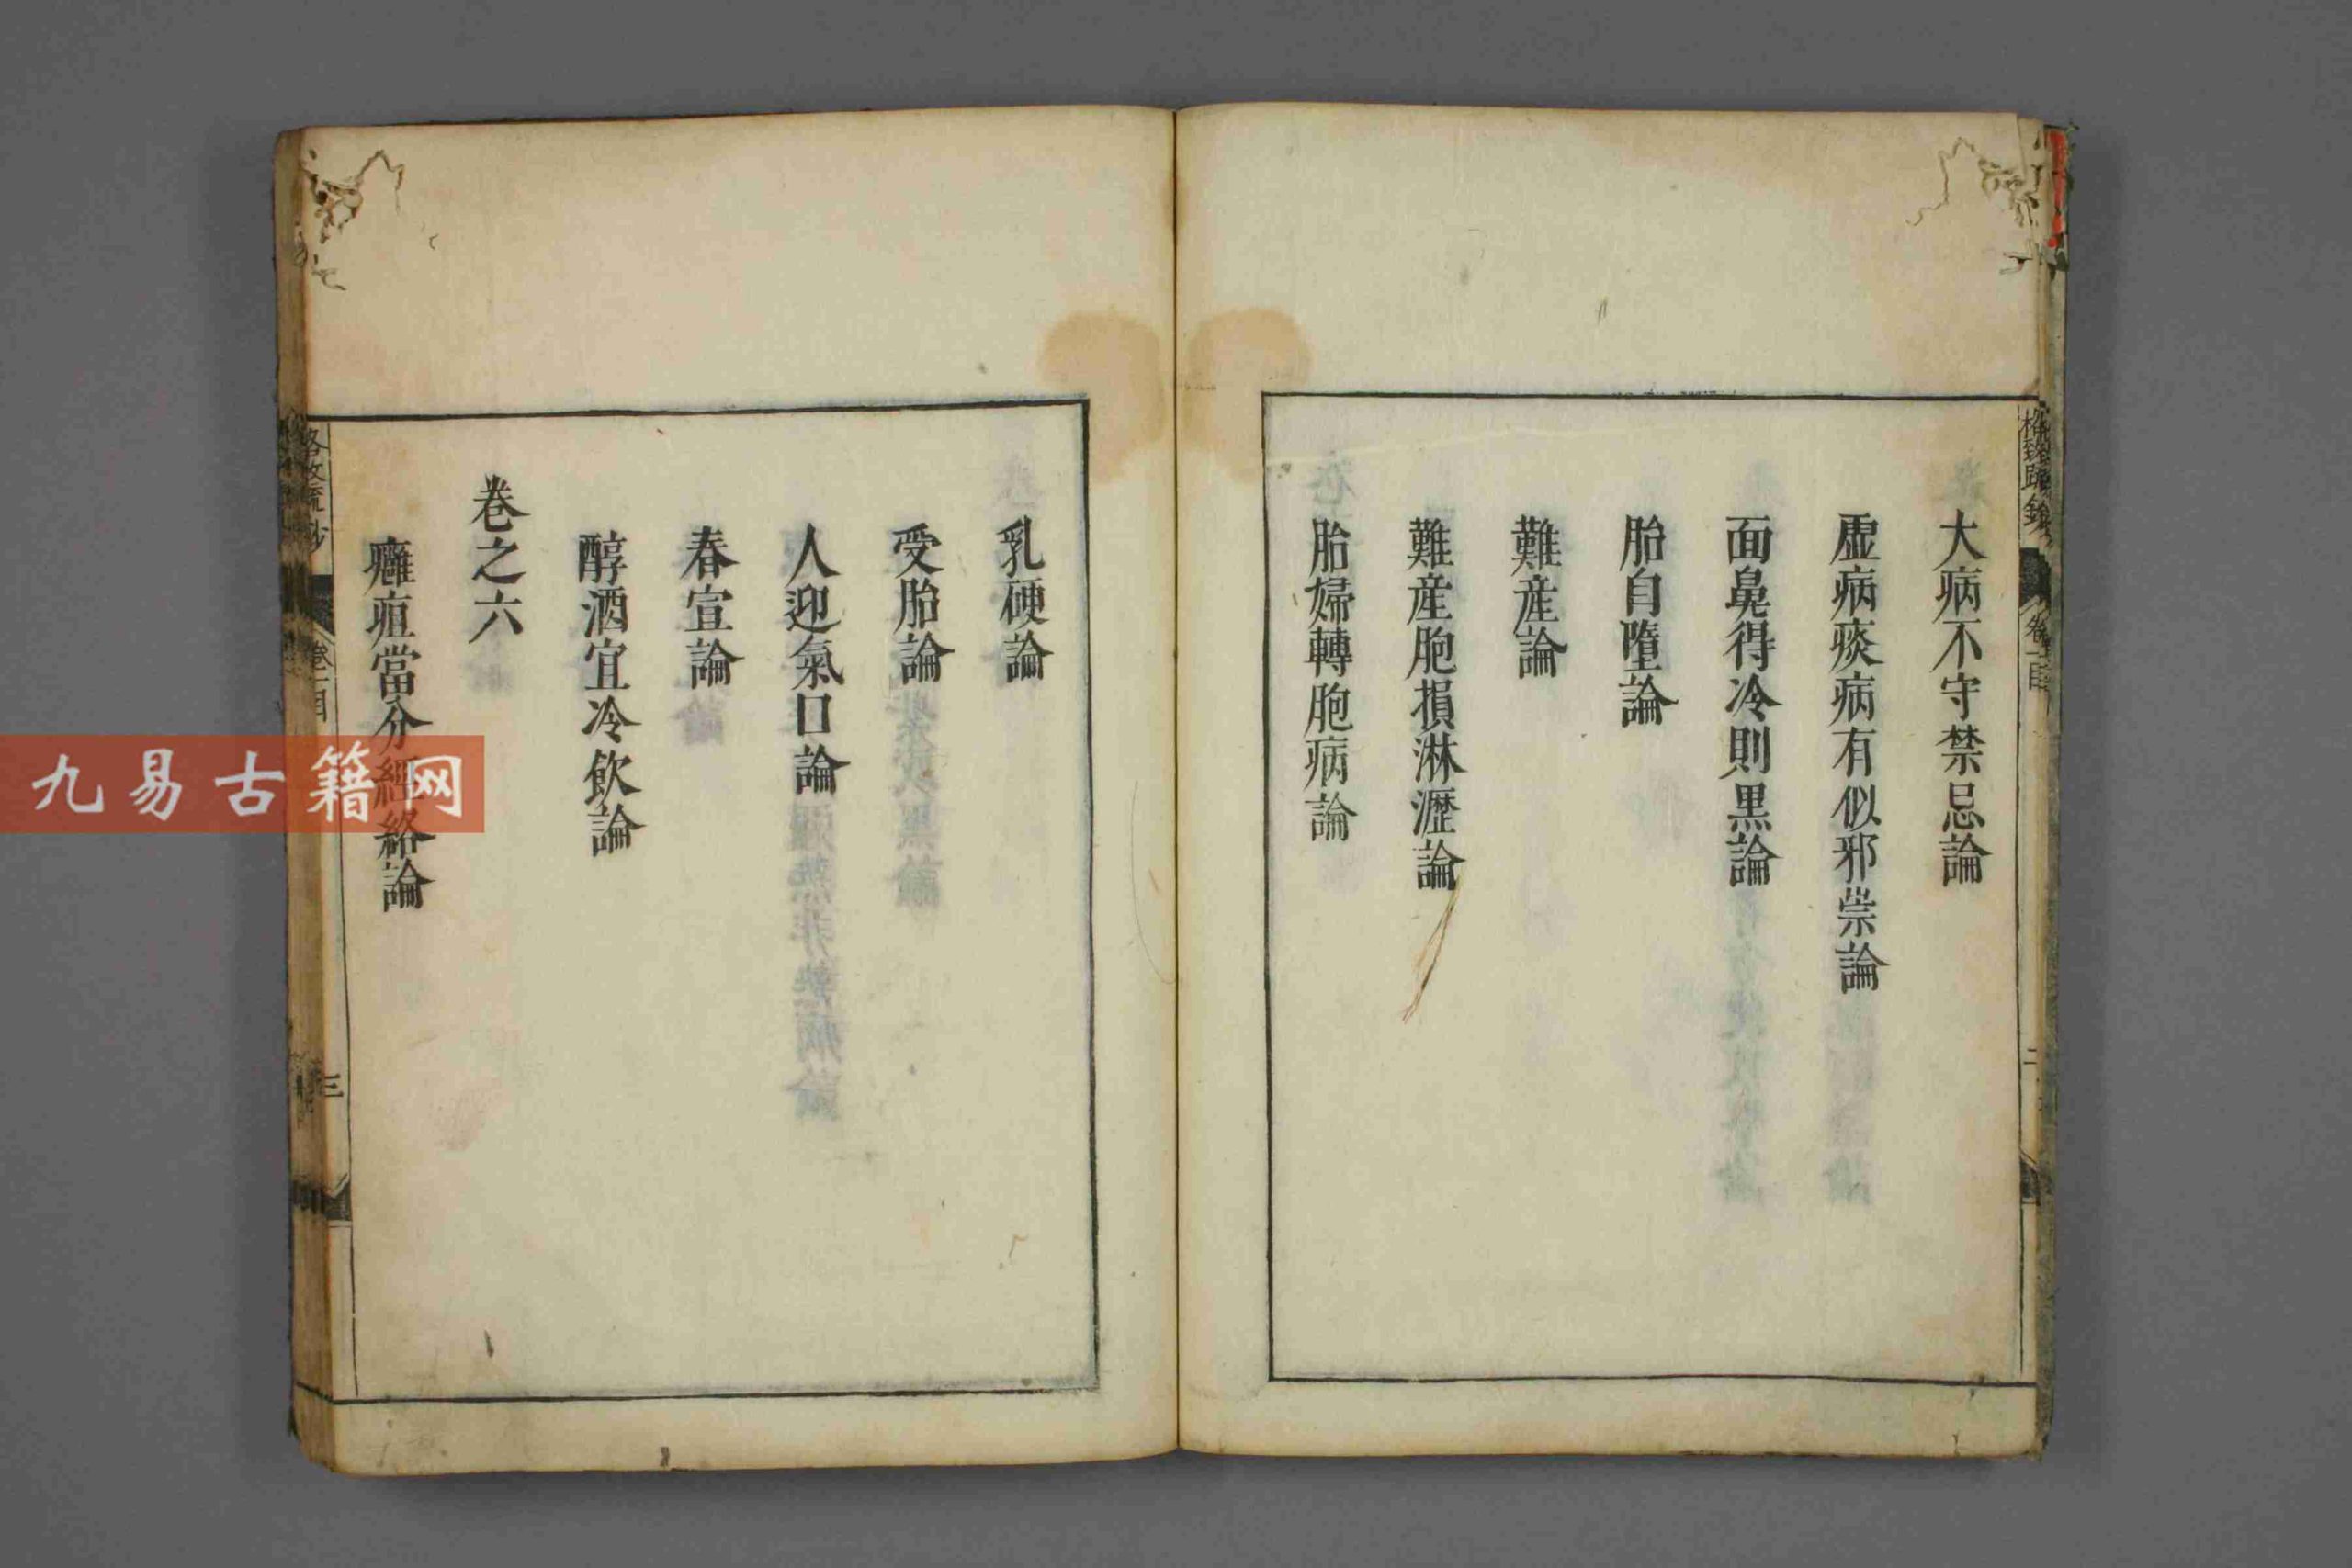 大病不守禁忌論
虛病痰病有似邪祟論
面鼻得冷則黑論
胎自墮論
難産論
難産胞損淋瀝論
胎婦轉胞病論
乳硬論
受胎論
人迎氣口論
春宣論
醇酒宜冷飲論
卷之六
癰疽當分經絡論
三
九易古籍网